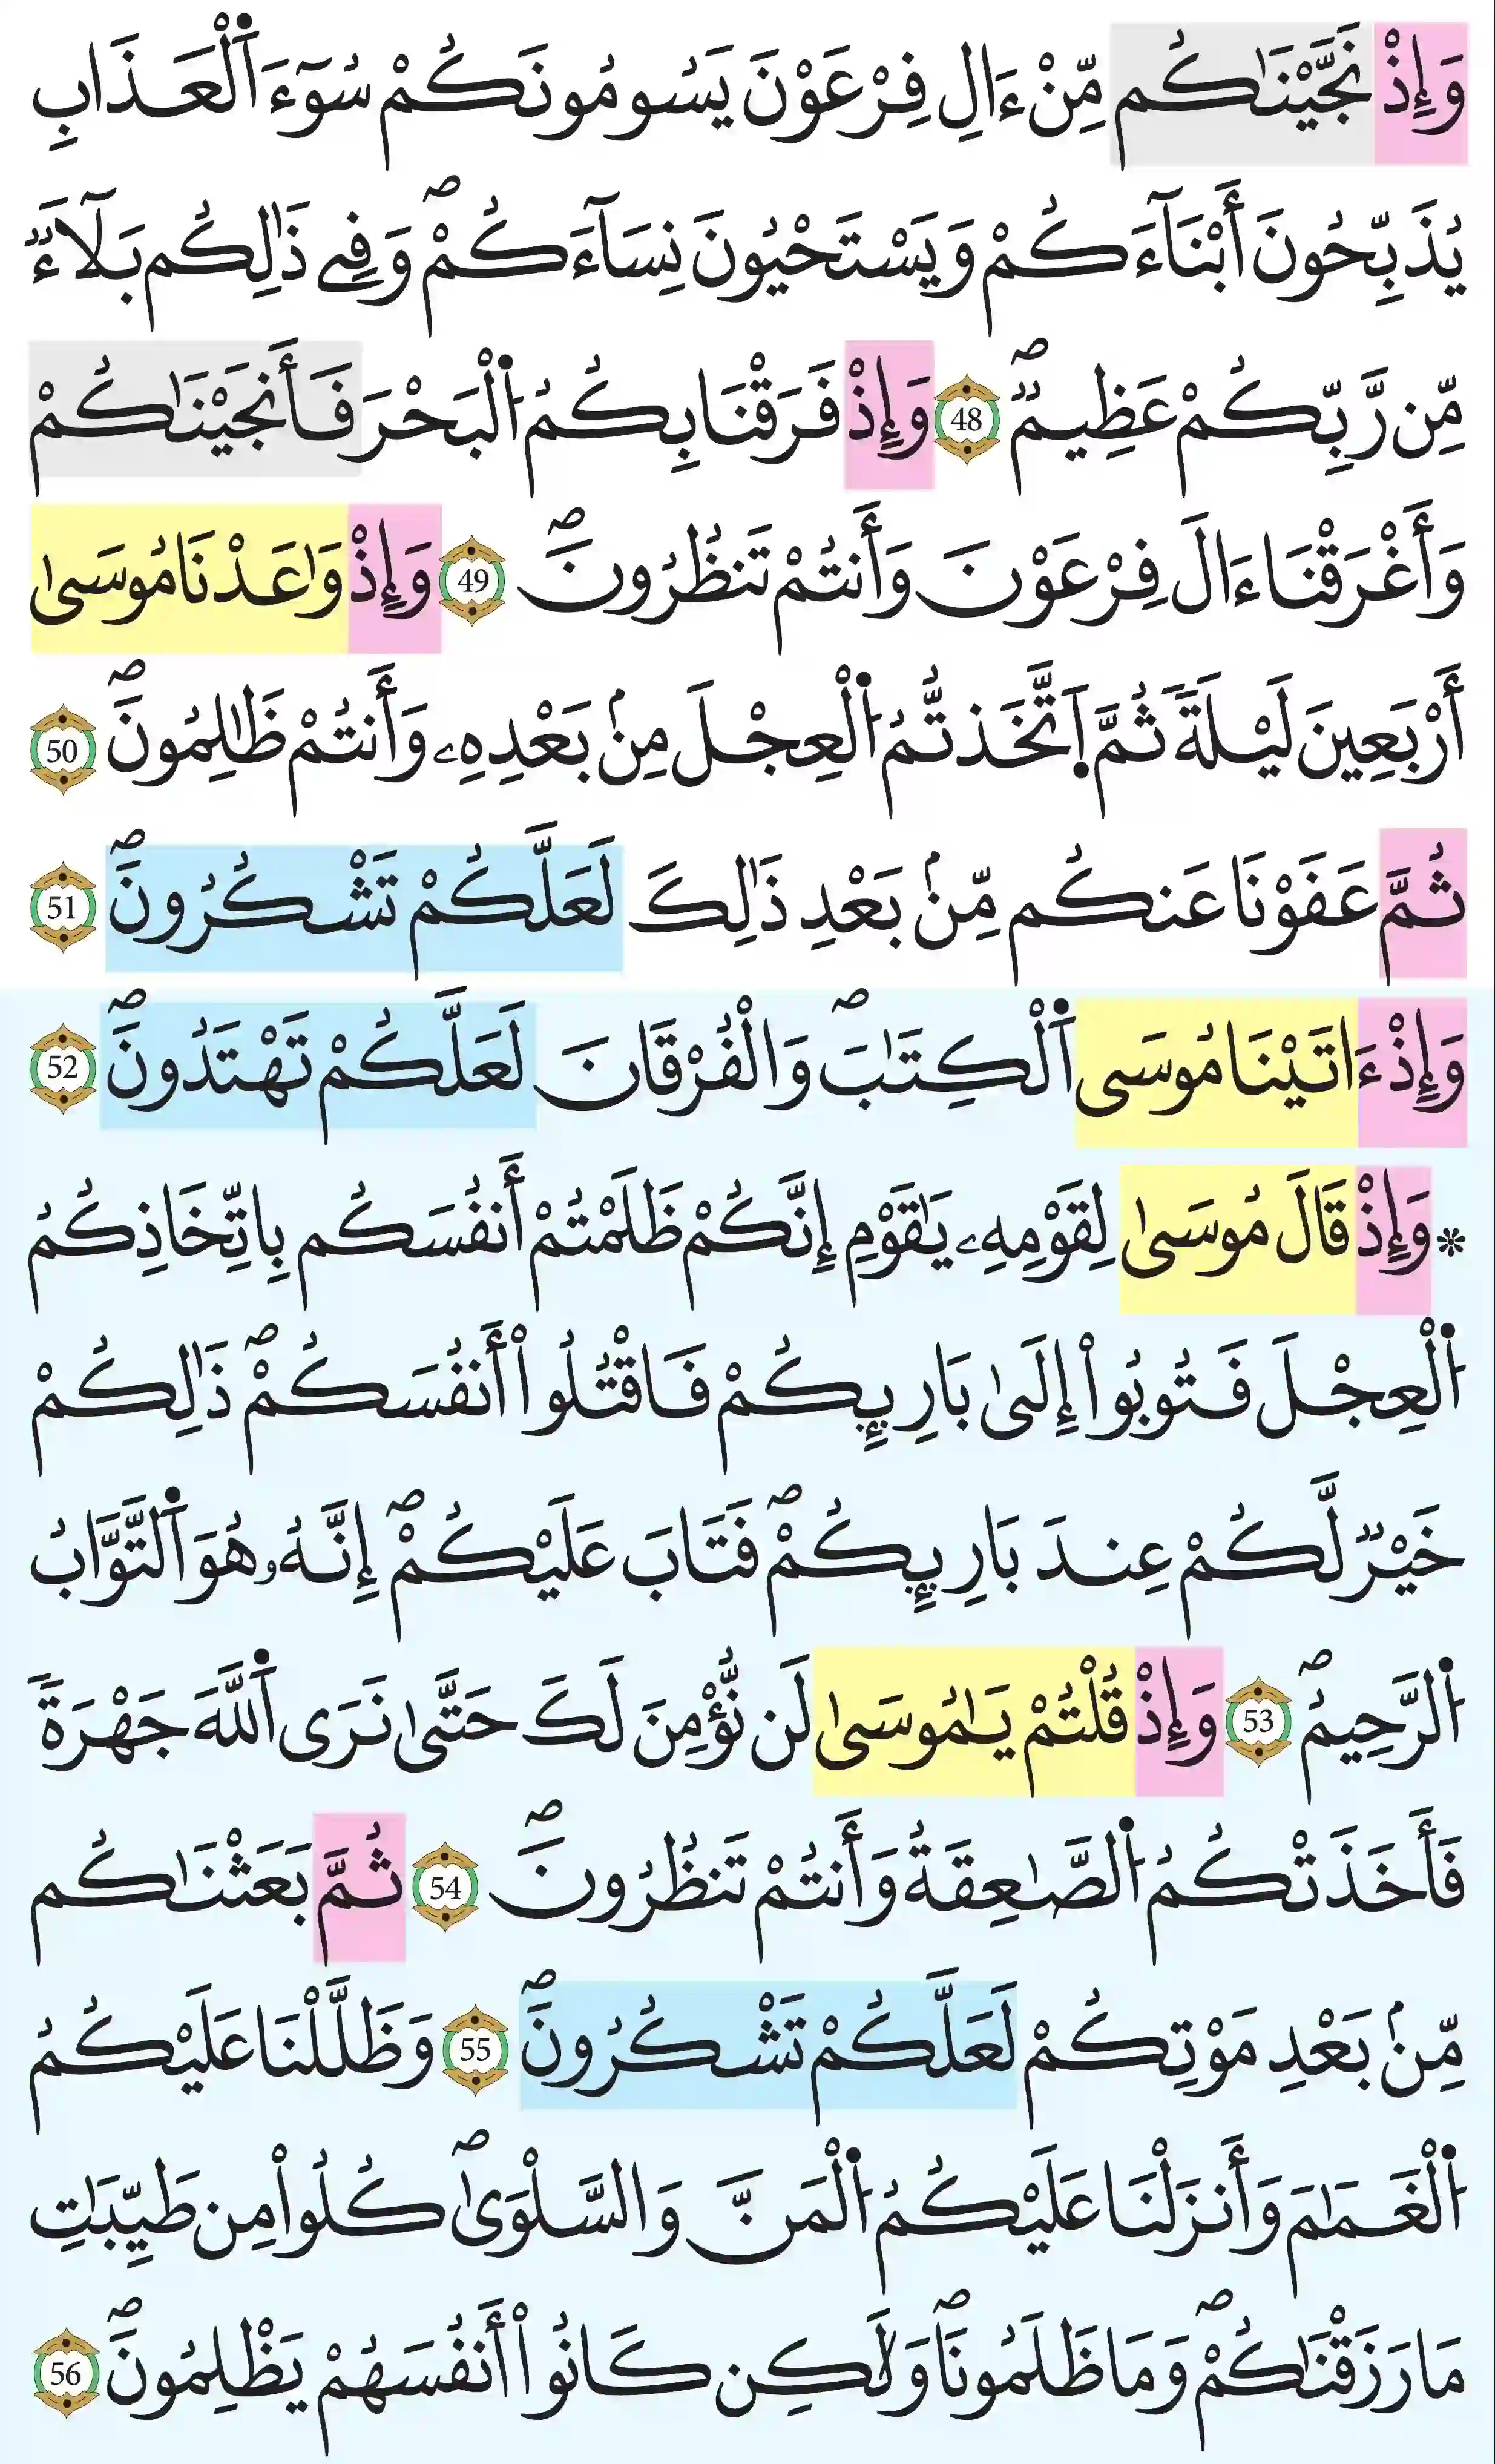 وَإِذْ نَجَّيْنَٰكُم مِّنْ ءَالِ فِرْعَوْنَ يَسُومُونَكُمْ سُوٓءَ اَ۬لْعَذَابِ
يُذَبِّحُونَ أَبْنَآءَكُمْ وَيَسْتَحْيُونَ نِسَآءَكُمْۖ وَفِے ذَٰلِكُم بَلَآءٞ
مِّن رَّبِّكُمْ عَظِيمٞۖ 48 وَإِذْ فَرَقْنَا بِكُمُ اُ۬لْبَحْرَ فَأَنجَيْنَٰكُمْ
وَأَغْرَقْنَا ءَالَ فِرْعَوْنَ وَأَنتُمْ تَنظُرُونَۖ 49 وَإِذْ وَٰعَدْنَا مُوسَىٰ
أَرْبَعِينَ لَيْلَةٗ ثُمَّ اَ۪تَّخَذتُّمُ اُ۬لْعِجْلَ مِنۢ بَعْدِهِۦ وَأَنتُمْ ظَٰلِمُونَۖ 50
ثُمَّ عَفَوْنَا عَنكُم مِّنۢ بَعْدِ ذَٰلِكَ لَعَلَّكُمْ تَشْكُرُونَۖ 51
وَإِذْ ءَاتَيْنَا مُوسَى اَ۬لْكِتَٰبَۖ وَالْفُرْقَانَ لَعَلَّكُمْ تَهْتَدُونَۖ 52
* وَإِذْ قَالَ مُوسَىٰ لِقَوْمِهِۦ يَٰقَوْمِ إِنَّكُمْ ظَلَمْتُمْ أَنفُسَكُم بِاتِّخَاذِكُمُ
اُ۬لْعِجْلَ فَتُوبُواْ إِلَىٰ بَارِئِكُمْ فَاقْتُلُواْ أَنفُسَكُمْۖ ذَٰلِكُمْ
خَيْرٞ لَّكُمْ عِندَ بَارِئِكُمْۖ فَتَابَ عَلَيْكُمْۖ إِنَّهُۥ هُوَ اَ۬لتَّوَّابُ
اُ۬لرَّحِيمُۖ 53 وَإِذْ قُلْتُمْ يَٰمُوسَىٰ لَن نُّؤْمِنَ لَكَ حَتَّىٰ نَرَى اَ۬للَّهَ جَهْرَةٗ
فَأَخَذَتْكُمُ اُ۬لصَّٰعِقَةُ وَأَنتُمْ تَنظُرُونَۖ 54 ثُمَّ بَعَثْنَٰكُم
مِّنۢ بَعْدِ مَوْتِكُمْ لَعَلَّكُمْ تَشْكُرُونَۖ 55 وَظَلَّلْنَا عَلَيْكُمُ
اُ۬لْغَمَٰمَ وَأَنزَلْنَا عَلَيْكُمُ اُ۬لْمَنَّ وَالسَّلْوَىٰۖ كُلُواْ مِن طَيِّبَٰتِ
مَا رَزَقْنَٰكُمْۖ وَمَا ظَلَمُونَاۖ وَلَٰكِن كَانُواْ أَنفُسَهُمْ يَظْلِمُونَۖ 56